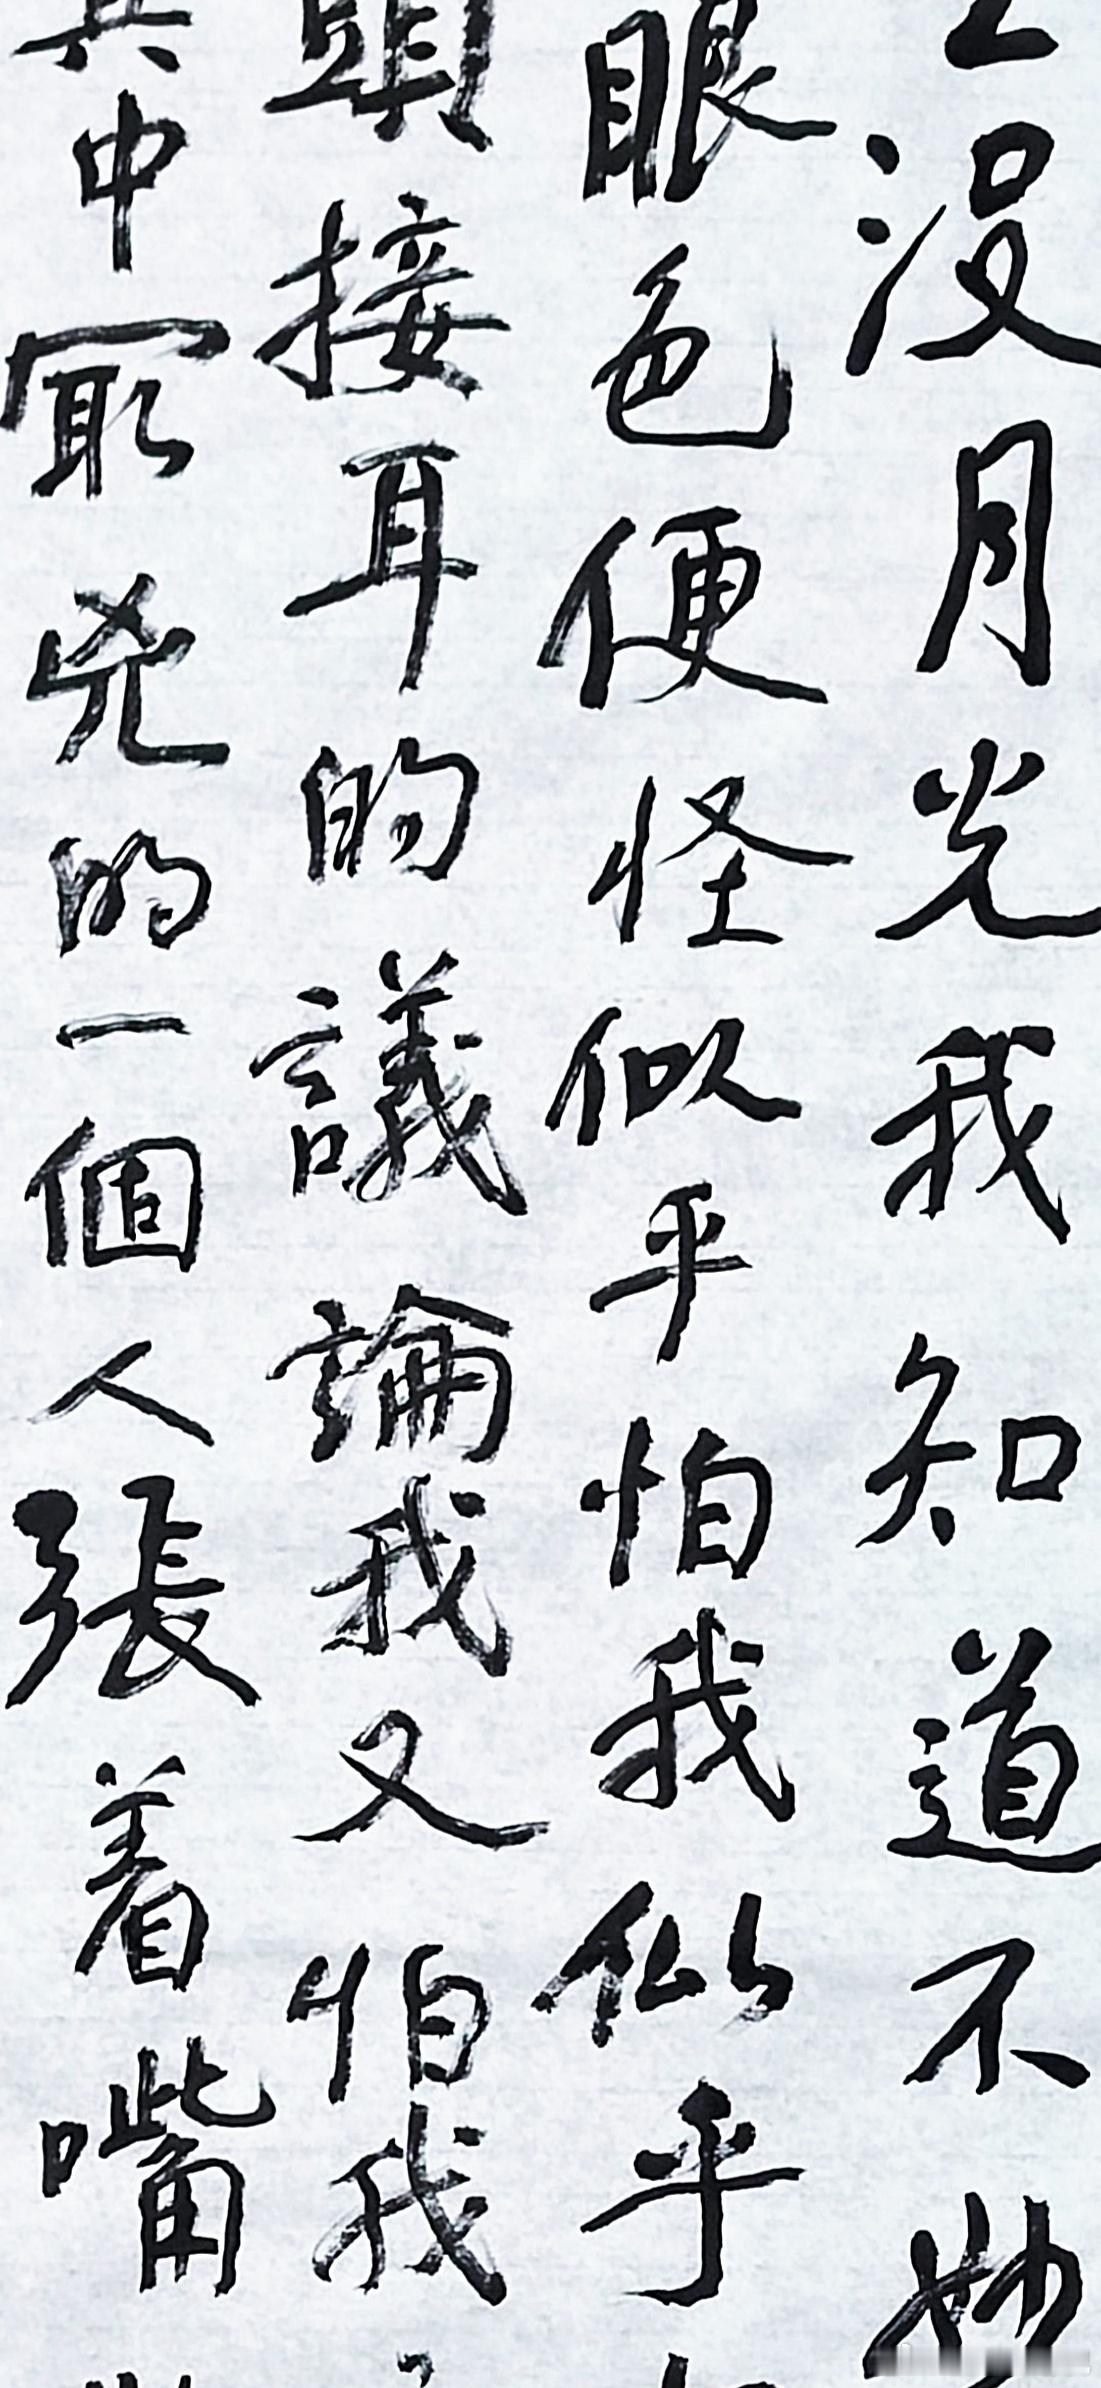 沒月光我知道不妙
眼色便怪似乎怕我似乎
頭接耳的議論我又怕我
其中冣兇的一個人張着嘴